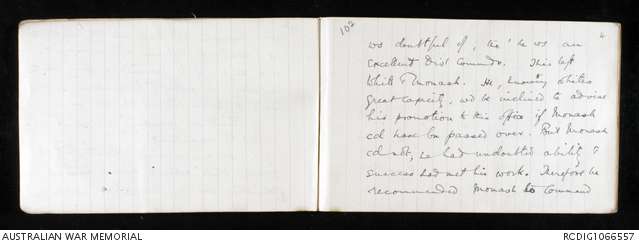 102
4
ws doubtful of, tho' he ws an
excellent Divl Commdr. This left
White & Monash. He, knowing Whites
great capacity, wd be inclined to advise
his promotion to the office if Monash
cd have bn passed over. But Monash
cd not, he had undoubted ability &
success had met his work. Therefore he
recommended Monash to Command
AUSTRALIAN WAR MEMORIAL
RCDIG1066557